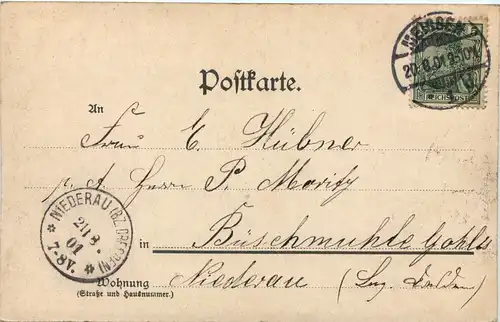 MEISSEN
20.8.01
REICHSPOST
Postkarte.
An
Frau E. Hübner
p. A. Herrn P. Moritz
NIEDERAU (BZ. DRESDEN)
20 8.
01
7-8V.
in Büschmühle Gohlis
Wohnung Niederau (Bez. Dresden)
(Straße und Hausnummer.)